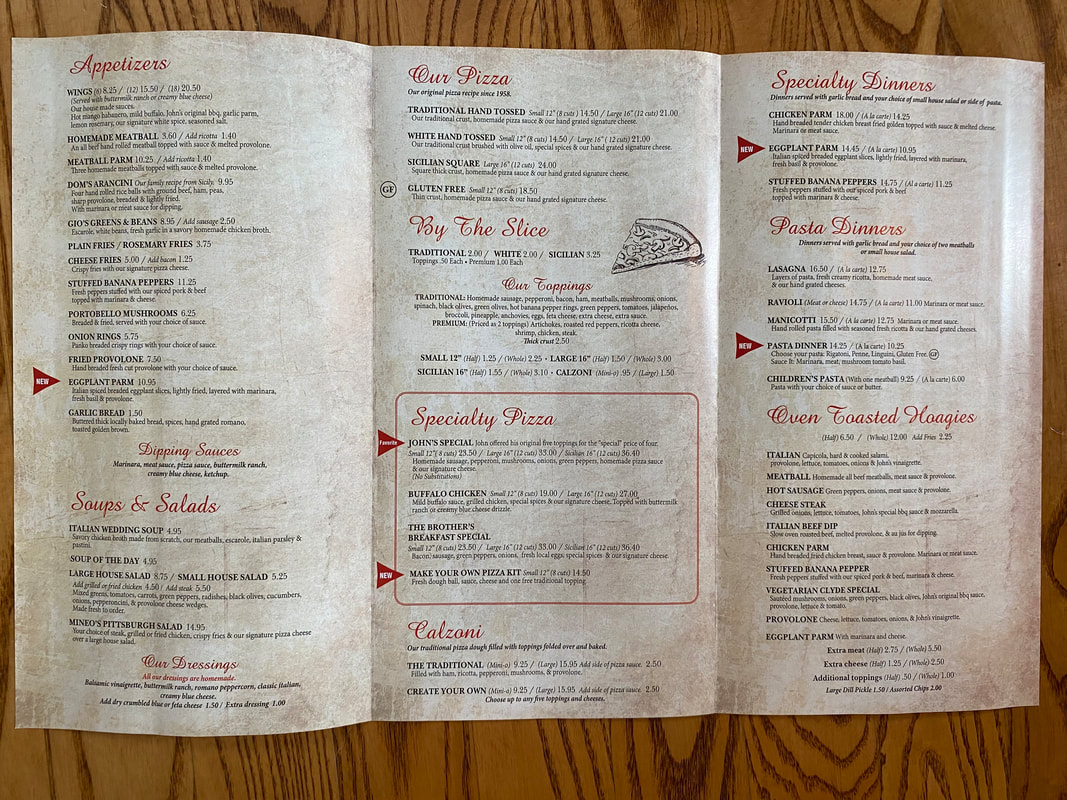 Appetizers
WINGS (6) 8.25 / (12) 15.50 / (18) 20.50
(Served with buttermilk ranch or creamy blue cheese)
Our house made sauces.
Hot mango habanero, mild buffalo, John's original bbq, garlic parm,
lemon rosemary, our signature white spice, seasoned salt.
HOMEMADE MEATBALL 3.60 / Add ricotta 1.40
An all beef hand rolled meatball topped with sauce & melted provolone.
MEATBALL PARM 10.25 / Add ricotta 1.40
Three homemade meatballs topped with sauce & melted provolone.
DOM'S ARANCINI Our family recipe from Sicily. 9.95
Four hand rolled rice balls with ground beef, ham, peas,
sharp provolone, breaded & lightly fried.
With marinara or meat sauce for dipping.
GIO'S GREENS & BEANS 8.95 / Add sausage 2.50
Escarole, white beans, fresh garlic in a savory homemade chicken broth.
PLAIN FRIES / ROSEMARY FRIES 3.75
CHEESE FRIES 5.00 / Add bacon 1.25
Crispy fries with our signature pizza cheese.
STUFFED BANANA PEPPERS 11.25
Fresh peppers stuffed with our spiced pork & beef
topped with marinara & cheese.
PORTOBELLO MUSHROOMS 6.25
Breaded & fried, served with your choice of sauce.
ONION RINGS 5.75
Panko breaded crispy rings with your choice of sauce.
FRIED PROVOLONE 7.50
Hand breaded fresh cut provolone with your choice of sauce.
NEW
EGGPLANT PARM 10.95
Italian spiced breaded eggplant slices, lightly fried, layered with marinara,
fresh basil & provolone.
GARLIC BREAD 1.50
Buttered thick locally baked bread, spices, hand grated romano,
toasted golden brown.
Dipping Sauces
Marinara, meat sauce, pizza sauce, buttermilk ranch,
creamy blue cheese, ketchup.
Soups & Salads
ITALIAN WEDDING SOUP 4.95
Savory chicken broth made from scratch, our meatballs, escarole, italian parsley &
pastini.
SOUP OF THE DAY 4.95
LARGE HOUSE SALAD 8.75 / SMALL HOUSE SALAD 5.25
Add grilled or fried chicken 4.50 / Add steak 5.50
Mixed greens, tomatoes, carrots, green peppers, radishes, black olives, cucumbers,
onions, pepperoncini, & provolone cheese wedges.
Made fresh to order.
MINEO'S PITTSBURGH SALAD 14.95
Your choice of steak, grilled or fried chicken, crispy fries & our signature pizza cheese
over a large house salad.
Our Dressings
All our dressings are homemade.
Balsamic vinaigrette, buttermilk ranch, romano peppercorn, classic italian,
creamy blue cheese.
Add dry crumbled blue or feta cheese 1.50 / Extra dressing 1.00
Our Pizza
Our original pizza recipe since 1958.
TRADITIONAL HAND TOSSED Small 12" (8 cuts) 14.50 / Large 16" (12 cuts) 21.00
Our traditional crust, homemade pizza sauce & our hand grated signature cheese.
WHITE HAND TOSSED Small 12" (8 cuts) 14.50 / Large 16" (12 cuts) 21.00
Our traditional crust brushed with olive oil, special spices & our hand grated signature cheese.
SICILIAN SQUARE Large 16" (12 cuts) 24.00
Square thick crust, homemade pizza sauce & our hand grated signature cheese.
GF
GLUTEN FREE Small 12" (8 cuts) 18.50
Thin crust, homemade pizza sauce & our hand grated signature cheese.
By The Slice
TRADITIONAL 2.00 / WHITE 2.00 / SICILIAN 3.25
Toppings .50 Each • Premium 1.00 Each
Our Toppings
TRADITIONAL: Homemade sausage, pepperoni, bacon, ham, meatballs, mushrooms, onions,
spinach, black olives, green olives, hot banana pepper rings, green peppers, tomatoes, jalapeños,
broccoli, pineapple, anchovies, eggs, feta cheese, extra cheese, extra sauce.
PREMIUM: (Priced as 2 toppings) Artichokes, roasted red peppers, ricotta cheese,
shrimp, chicken, steak.
Thick crust 2.50
SMALL 12" (Half) 1.25 / (Whole) 2.25 • LARGE 16" (Half) 1.50 / (Whole) 3.00
SICILIAN 16" (Half) 1.55 / (Whole) 3.10 • CALZONI (Mini-o) .95 / (Large) 1.50
Specialty Pizza
Favorite
JOHN'S SPECIAL John offered his original five toppings for the "special" price of four.
Small 12" (8 cuts) 23.50 / Large 16" (12 cuts) 33.00 / Sicilian 16" (12 cuts) 36.40
Homemade sausage, pepperoni, mushrooms, onions, green peppers, homemade pizza sauce
& our signature cheese.
(No Substitutions)
BUFFALO CHICKEN Small 12" (8 cuts) 19.00 / Large 16" (12 cuts) 27.00
Mild buffalo sauce, grilled chicken, special spices & our signature cheese. Topped with buttermilk
ranch or creamy blue cheese drizzle.
THE BROTHER'S
BREAKFAST SPECIAL
Small 12" (8 cuts) 23.50 / Large 16" (12 cuts) 33.00 / Sicilian 16" (12 cuts) 36.40
Bacon, sausage, green peppers, onions, fresh local eggs, special spices & our signature cheese.
NEW
MAKE YOUR OWN PIZZA KIT Small 12" (8 cuts) 14.50
Fresh dough ball, sauce, cheese and one free traditional topping.
Calzoni
Our traditional pizza dough filled with toppings folded over and baked.
THE TRADITIONAL (Mini-o) 9.25 / (Large) 15.95 Add side of pizza sauce. 2.50
Filled with ham, ricotta, pepperoni, mushrooms, & provolone.
CREATE YOUR OWN (Mini-o) 9.25 / (Large) 15.95 Add side of pizza sauce. 2.50
Choose up to any five toppings and cheeses.
Specialty Dinners
Dinners served with garlic bread and your choice of small house salad or side of pasta.
CHICKEN PARM 18.00 / (A la carte) 14.25
Hand breaded tender chicken breast fried golden topped with sauce & melted cheese.
Marinara or meat sauce.
NEW
EGGPLANT PARM 14.45 / (A la carte) 10.95
Italian spiced breaded eggplant slices, lightly fried, layered with marinara,
fresh basil & provolone.
STUFFED BANANA PEPPERS 14.75 / (A la carte) 11.25
Fresh peppers stuffed with our spiced pork & beef
topped with marinara & cheese.
Pasta Dinners
Dinners served with garlic bread and your choice of two meatballs
or small house salad.
LASAGNA 16.50 / (A la carte) 12.75
Layers of pasta, fresh creamy ricotta, homemade meat sauce,
& our hand grated cheeses.
RAVIOLI (Meat or cheese) 14.75 / (A la carte) 11.00 Marinara or meat sauce.
MANICOTTI 15.50 / (A la carte) 12.75 Marinara or meat sauce.
Hand rolled pasta filled with seasoned fresh ricotta & our hand grated cheeses.
NEW
PASTA DINNER 14.25 / (A la carte) 10.25
Choose your pasta: Rigatoni, Penne, Linguini, Gluten Free. GF
Sauce It: Marinara, meat, mushroom tomato basil.
CHILDREN'S PASTA (With one meatball) 9.25 / (A la carte) 6.00
Pasta with your choice of sauce or butter.
Oven Toasted Hoagies
(Half) 6.50 / (Whole) 12.00 Add Fries 2.25
ITALIAN Capicola, hard & cooked salami,
provolone, lettuce, tomatoes, onions & John's vinaigrette.
MEATBALL Homemade all beef meatballs, meat sauce & provolone.
HOT SAUSAGE Green peppers, onions, meat sauce & provolone.
CHEESE STEAK
Grilled onions, lettuce, tomatoes, John's special bbq sauce & mozzarella.
ITALIAN BEEF DIP
Slow oven roasted beef, melted provolone, & au jus for dipping.
CHICKEN PARM
Hand breaded fried chicken breast, sauce & provolone. Marinara or meat sauce.
STUFFED BANANA PEPPER
Fresh peppers stuffed with our spiced pork & beef, marinara & cheese.
VEGETARIAN CLYDE SPECIAL
Sautéed mushrooms, onions, green peppers, black olives, John's original bbq sauce,
provolone, lettuce & tomato.
PROVOLONE Cheese, lettuce, tomatoes, onions, & John's vinaigrette.
EGGPLANT PARM With marinara and cheese.
Extra meat (Half) 2.75 / (Whole) 5.50
Extra cheese (Half) 1.25 / (Whole) 2.50
Additional toppings (Half) .50 / (Whole) 1.00
Large Dill Pickle 1.50 / Assorted Chips 2.00